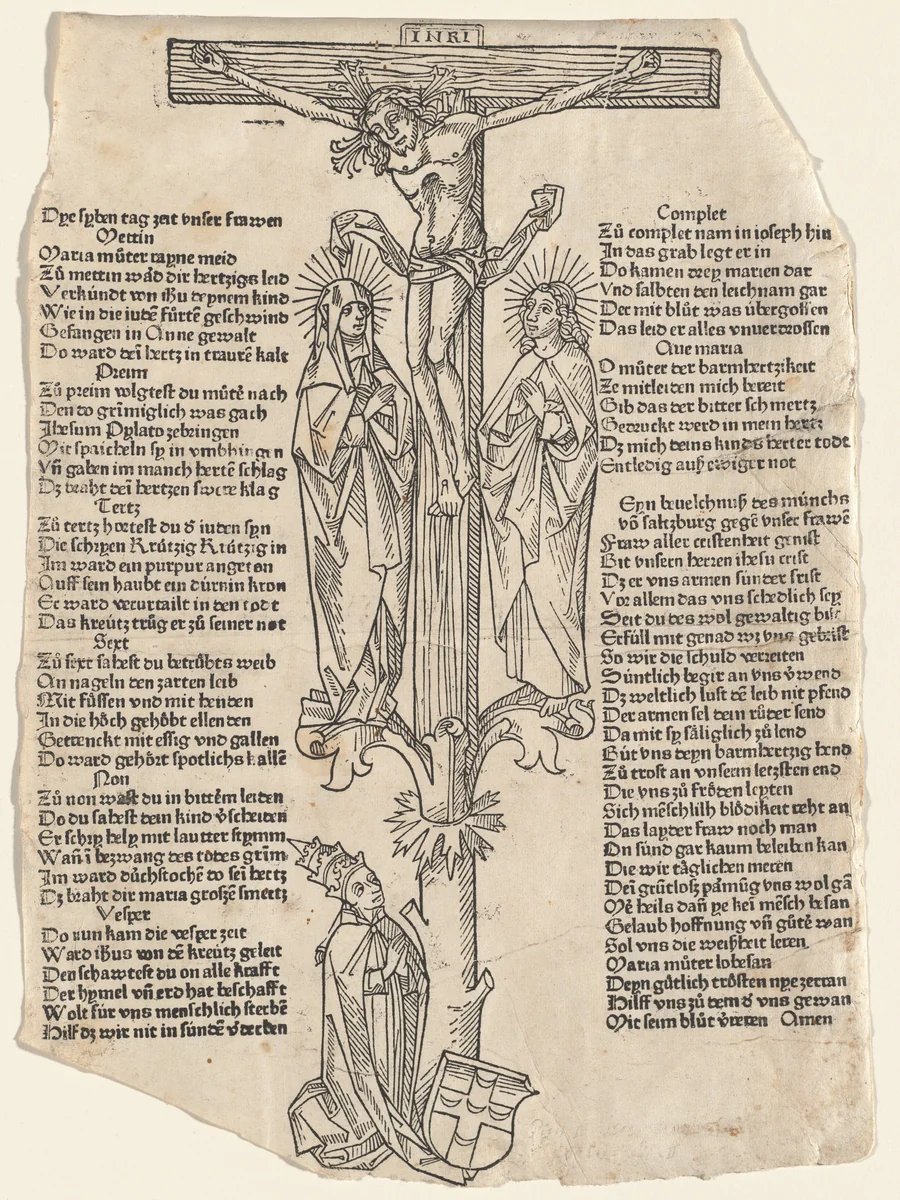 INRI
Dye syben tag zeit vnser frawen
Mettin
Maria můter rayne meid
Zů mettin wåd dir hertzigs leid
Verkündt von ihu deynem kind
Wie in die iudē fürtē geschwind
Gefangen in Anne gewalt
Do ward dei hertz in traurē kalt
Preim
Zů preim volgtest du můtē nach
Den do grimiglich was gach
Jhesum Pylato zebringen
Mit spaicheln sy in vmbhingen
Vñ gaben im manch hertē schlag
Dz braht dei hertzen swere klag
Tertz
Zů tertz hortest du d iuden syn
Die schryen Krützig Krützig in
Im ward ein purpur angeton
Auff sein haubt ein dürnin kron
Er ward verurtailt in den todt
Das kreütz trůg er zů seiner not
Sext
Zů sext sahest du betrůbts weib
An nageln den zarten leib
Mit fůssen vnd mit henden
In die hőch gehőbt ellenden
Getrenckt mit essig vnd gallen
Do ward gehőrt spotlichs kallē
Non
Zů non wast du in bittēm leiden
Do du sahest dein kind v̄scheiden
Er schry hely mit lautter stymm
Wañ i bezwang des tődes grim
Im ward důchstochē do sei hertz
Dz braht dir maria große smertz
Vesper
Do nun kam die vesper zeit
Ward ihus von dē kreütz geleit
Den schawtest du on alle krafft
Der hymel vñ erd hat beschafft
Wolt für vns menschlich sterbē
Hilf dz wir nit in sündē v̄derben
Complet
Zů complet nam in ioseph hin
In das grab legt er in
Do kamen drey marien dar
Vnd salbten den leichnam gar
Der mit blůt was übergossen
Das leid er alles vnuerdrossen
Aue maria
O můter der barmhertzikeit
Ze mitleiden mich bereit
Gib das der bitter schmertz
Gedruckt werd in mein hertz
Dz mich deins kinds herter todt
Entledig auß ewiger not
Eyn beuelchnuß des münchs
vō saltzburg gegē vnser frawē
Fraw aller cristenheit genist
Bit vnsern herren ihesu crist
Dz er vns armen sünder frist
Vor allem das vns schedlich sey
Seit du des wol gewaltig bist
Erfüll mit genad wz vns gebrist
So wir die schuld verreiten
Süntlich begir an vns v̄wend
Dz weltlich lust dē leib nit pfend
Der armen sel dein růder send
Da mit sy sáliglich zů lend
Büt vns deyn barmhertzig hend
Zů trost an vnserm letzsten end
Die vns zů frőden leyten
Sich mēschlilh blődikeit reht an
Das layder fraw noch man
On sünd gar kaum beleiben kan
Die wir täglichen meren
Dei grütloß pámůg vns wol gā
Mē heils dañ ye kei mēsch besan
Gelaub hoffnung vñ gůtē wan
Sol vns die weißheit leren
Maria můter lobesan
Deyn gůtlich trősten nye zerran
Hilff vns zů dem d vns gewan
Mit seim blůt v̄reren Amen